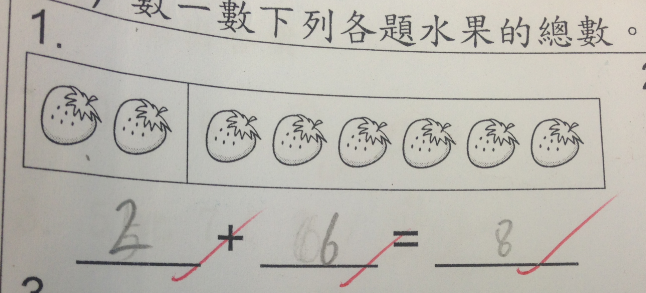 數一數下列各題水果的總數。
1.
2 + 6 = 8
3